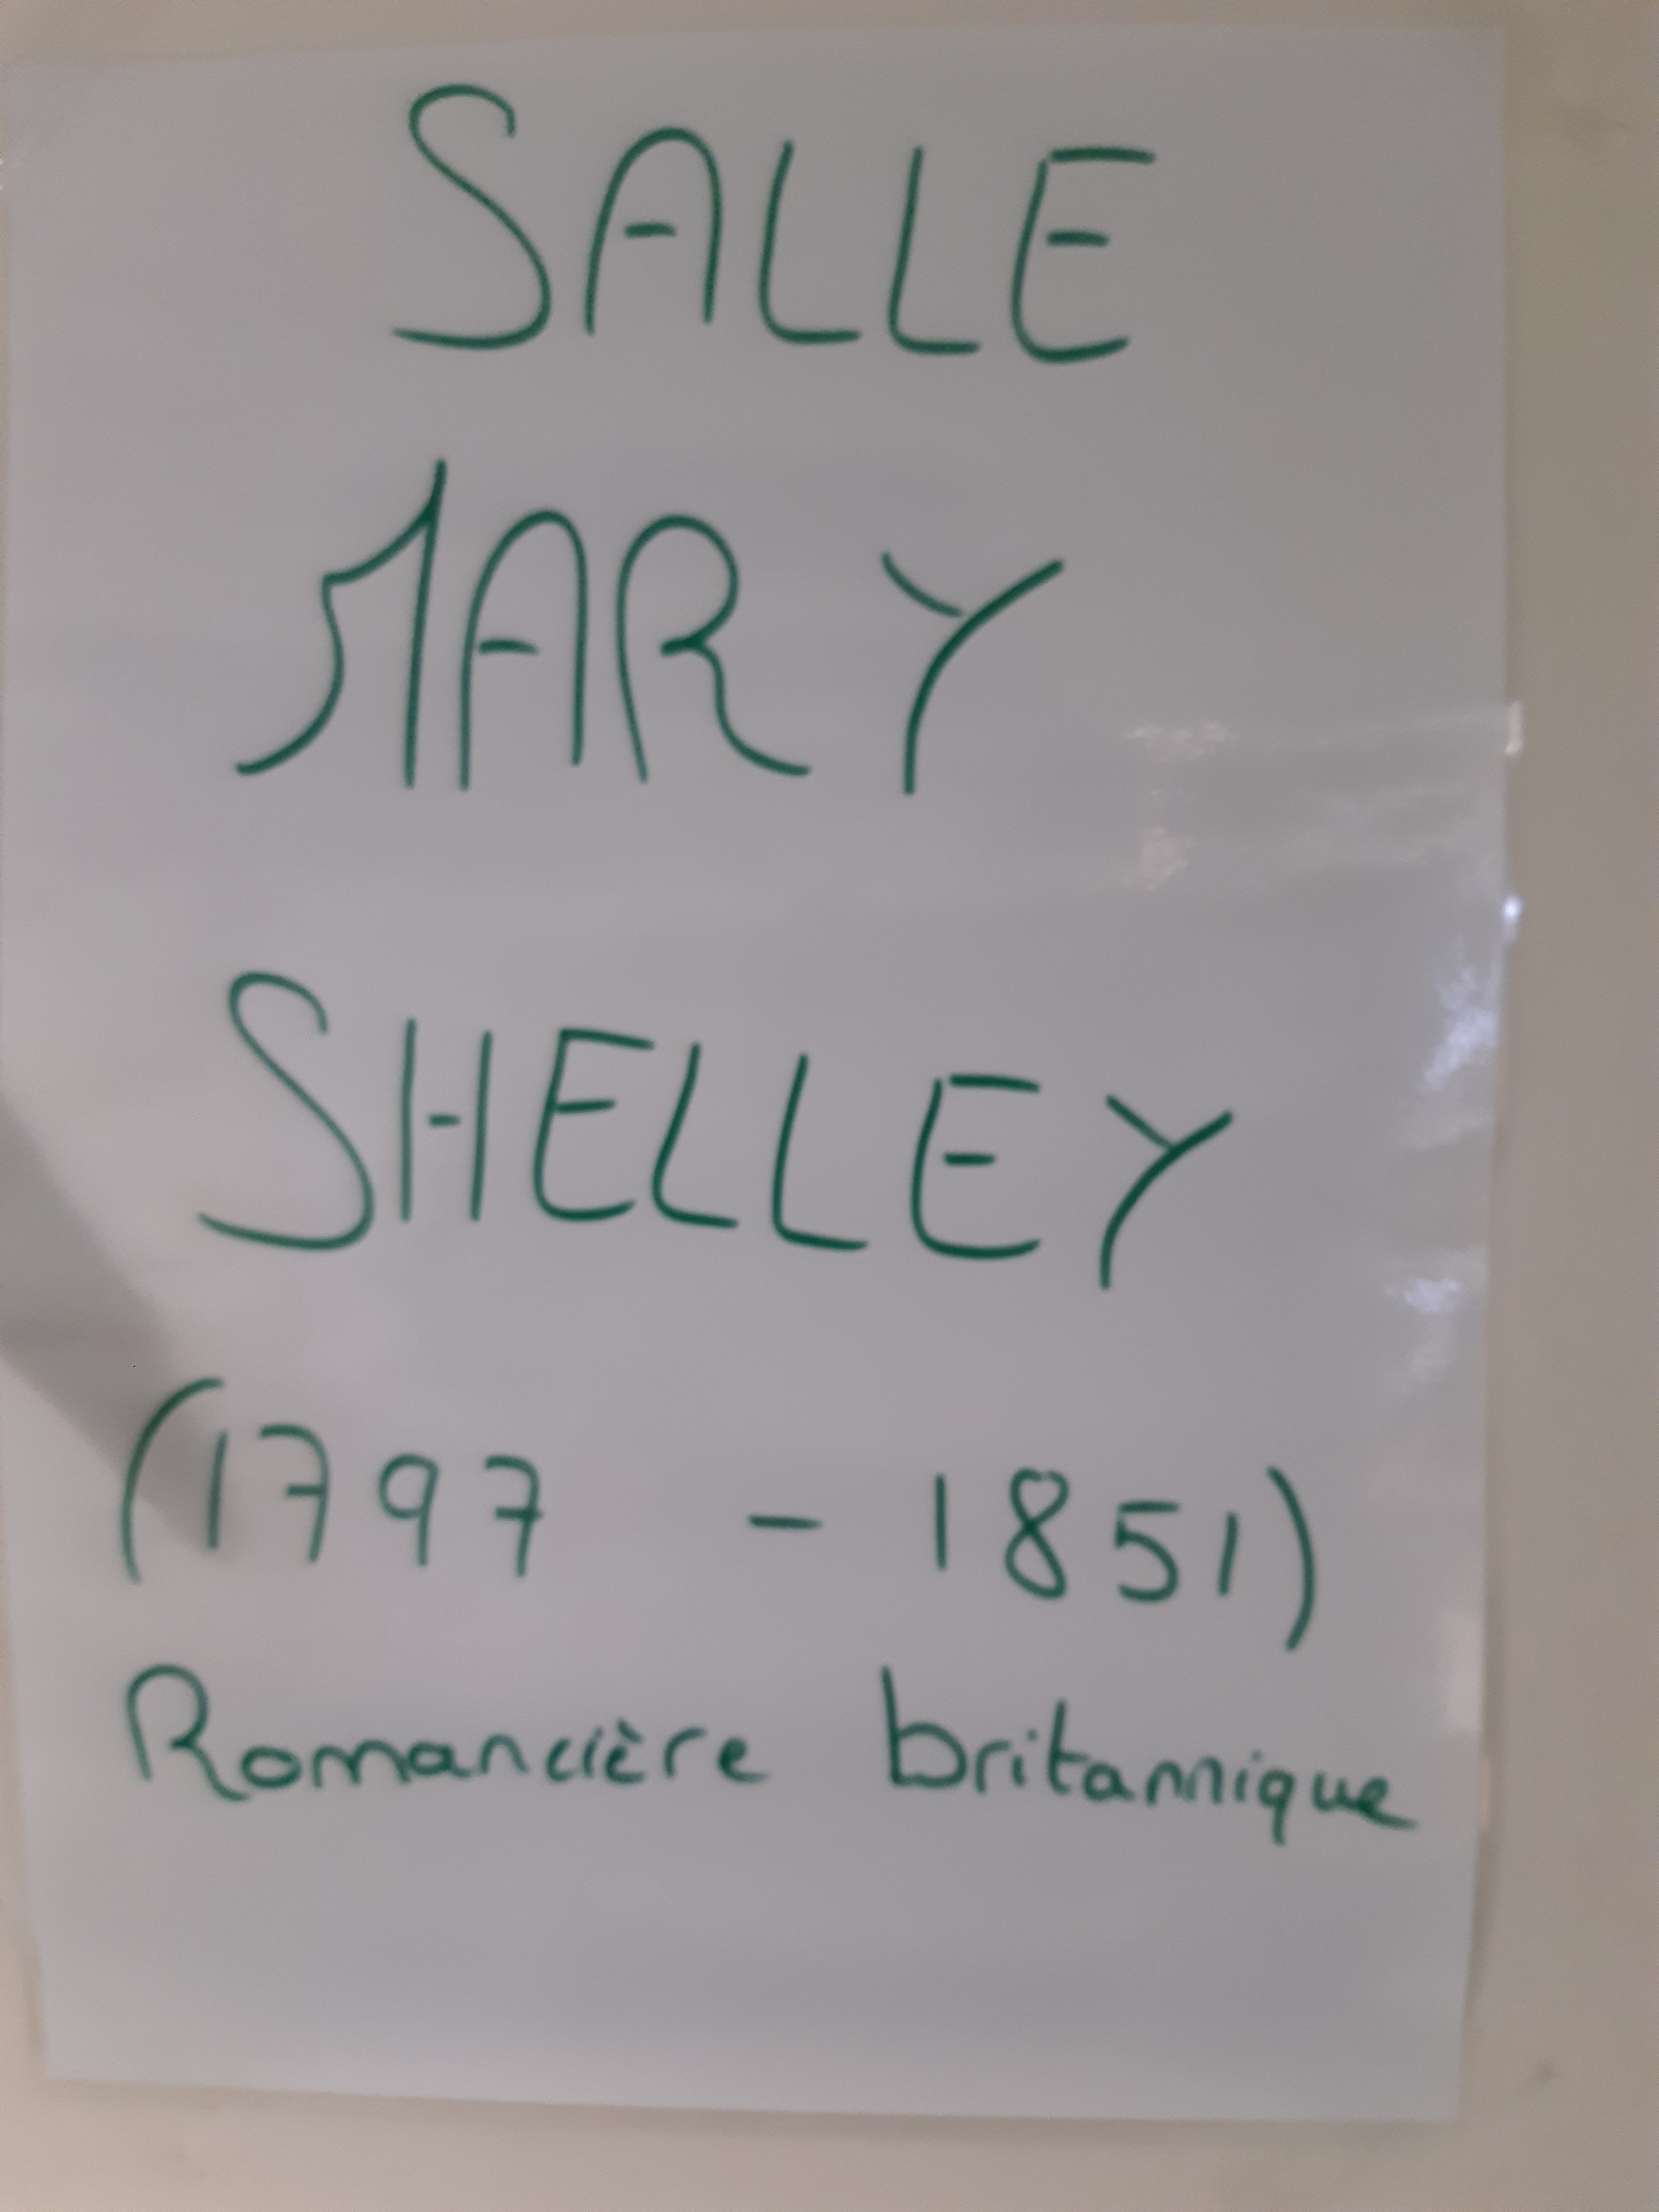 SALLE
MARY
SHELLEY
(1797 - 1851)
Romancière britannique